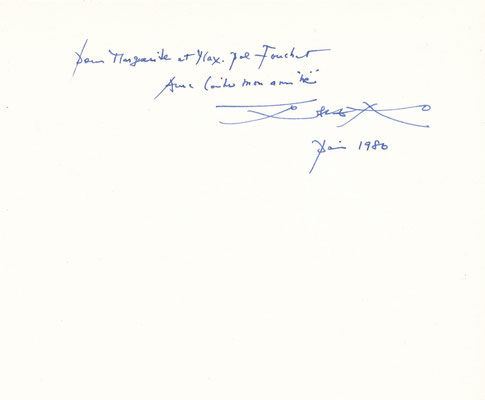 pour Marguerite et Max. pol Fouchet
avec toute mon amitié
Juin 1980